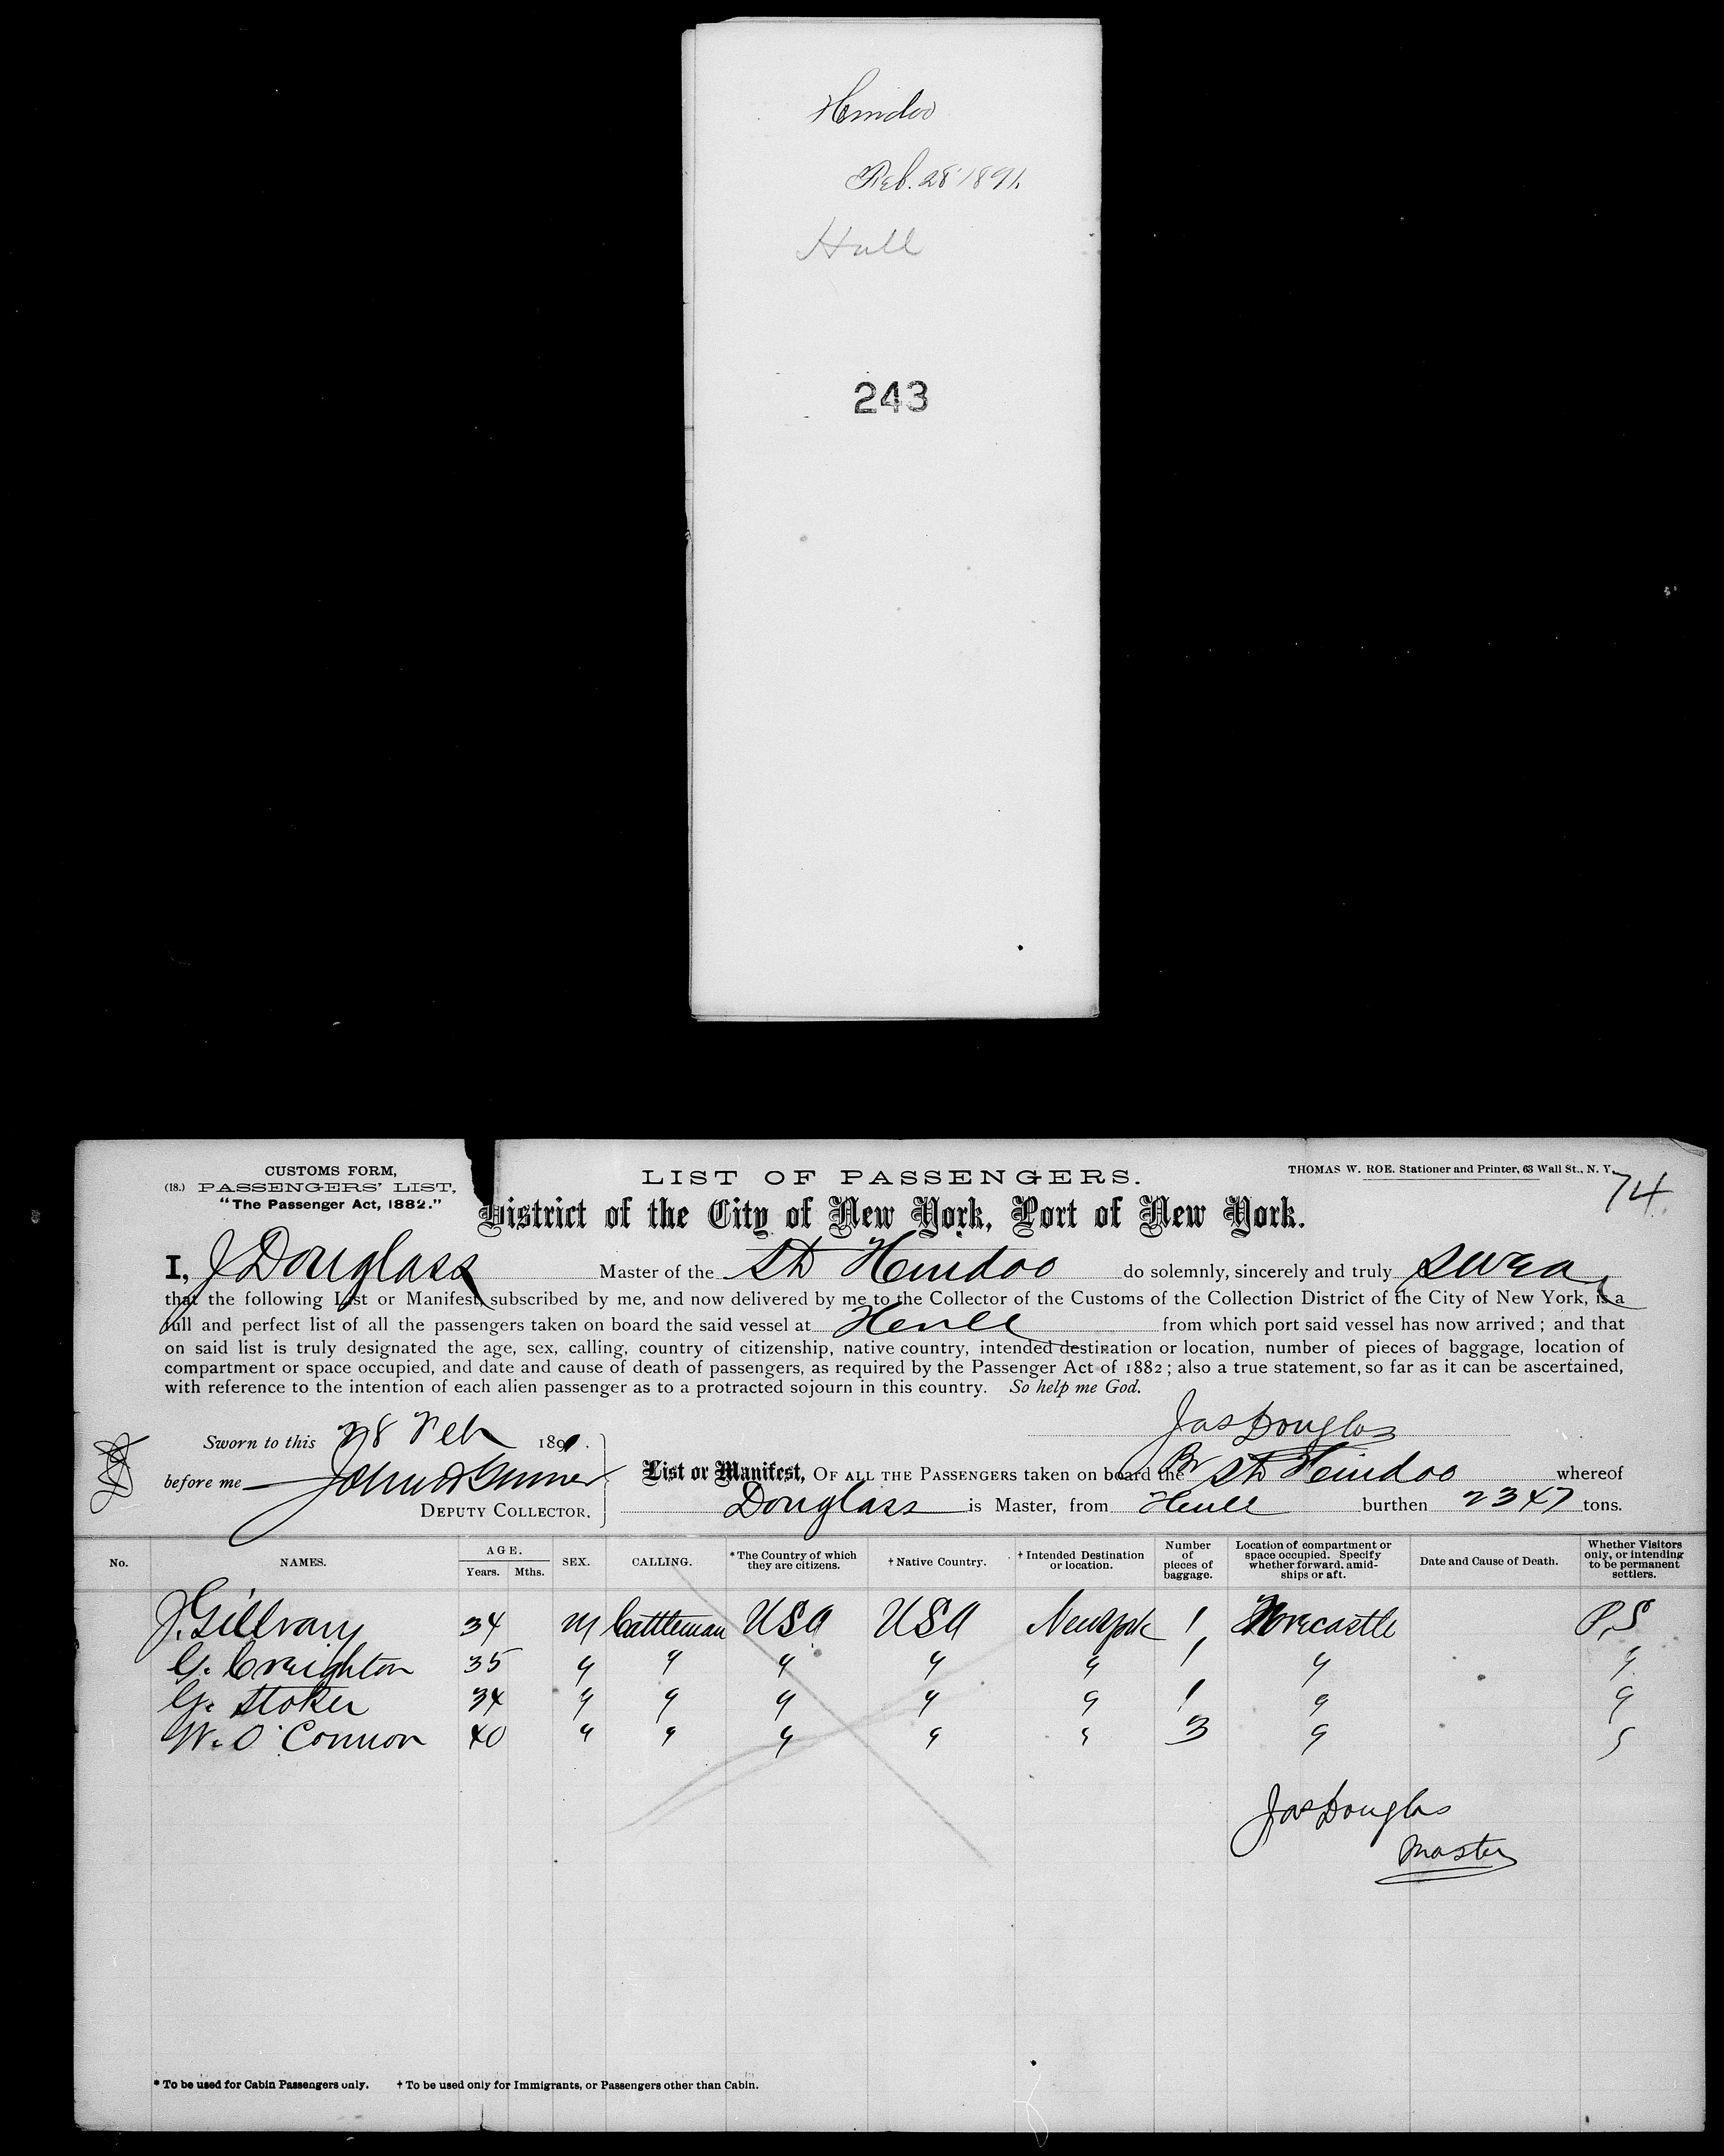 Hindoo
Feb. 28 1891.
Hull
243
CUSTOMS FORM,
(18.) PASSENGERS' LIST,
"The Passenger Act, 1882."
LIST OF PASSENGERS.
THOMAS W. ROE. Stationer and Printer, 63 Wall St., N. Y.
74
District of the City of New York, Port of New York.
I, J Douglass Master of the SS Hindoo do solemnly, sincerely and truly swear
that the following List or Manifest, subscribed by me, and now delivered by me to the Collector of the Customs of the Collection District of the City of New York, is a
full and perfect list of all the passengers taken on board the said vessel at Hull from which port said vessel has now arrived; and that
on said list is truly designated the age, sex, calling, country of citizenship, native country, intended destination or location, number of pieces of baggage, location of
compartment or space occupied, and date and cause of death of passengers, as required by the Passenger Act of 1882; also a true statement, so far as it can be ascertained,
with reference to the intention of each alien passenger as to a protracted sojourn in this country. So help me God.
Jas Douglas
Sworn to this 28 Feb 1891.
before me
DEPUTY COLLECTOR.
List or Manifest, OF ALL THE PASSENGERS taken on board the Br SS Hindoo whereof
Douglass is Master, from Hull burthen 2347 tons.
No. NAMES. AGE. Years. Mths. SEX. CALLING. *The Country of which they are citizens. † Native Country. † Intended Destination or location. Number of pieces of baggage. Location of compartment or space occupied. Specify whether forward, amidships or aft. Date and Cause of Death. Whether Visitors only, or intending to be permanent settlers.
J. Gillvary 34 M Cattleman USA USA New York 1 Forecastle P.S
G. Creighton 35 " " " " " 1 " "
G. Stoker 34 " " " " " 1 " "
W. O'Connor 40 " " " " " 3 " "
Jas Douglas
Master
* To be used for Cabin Passengers only. † To be used only for Immigrants, or Passengers other than Cabin.